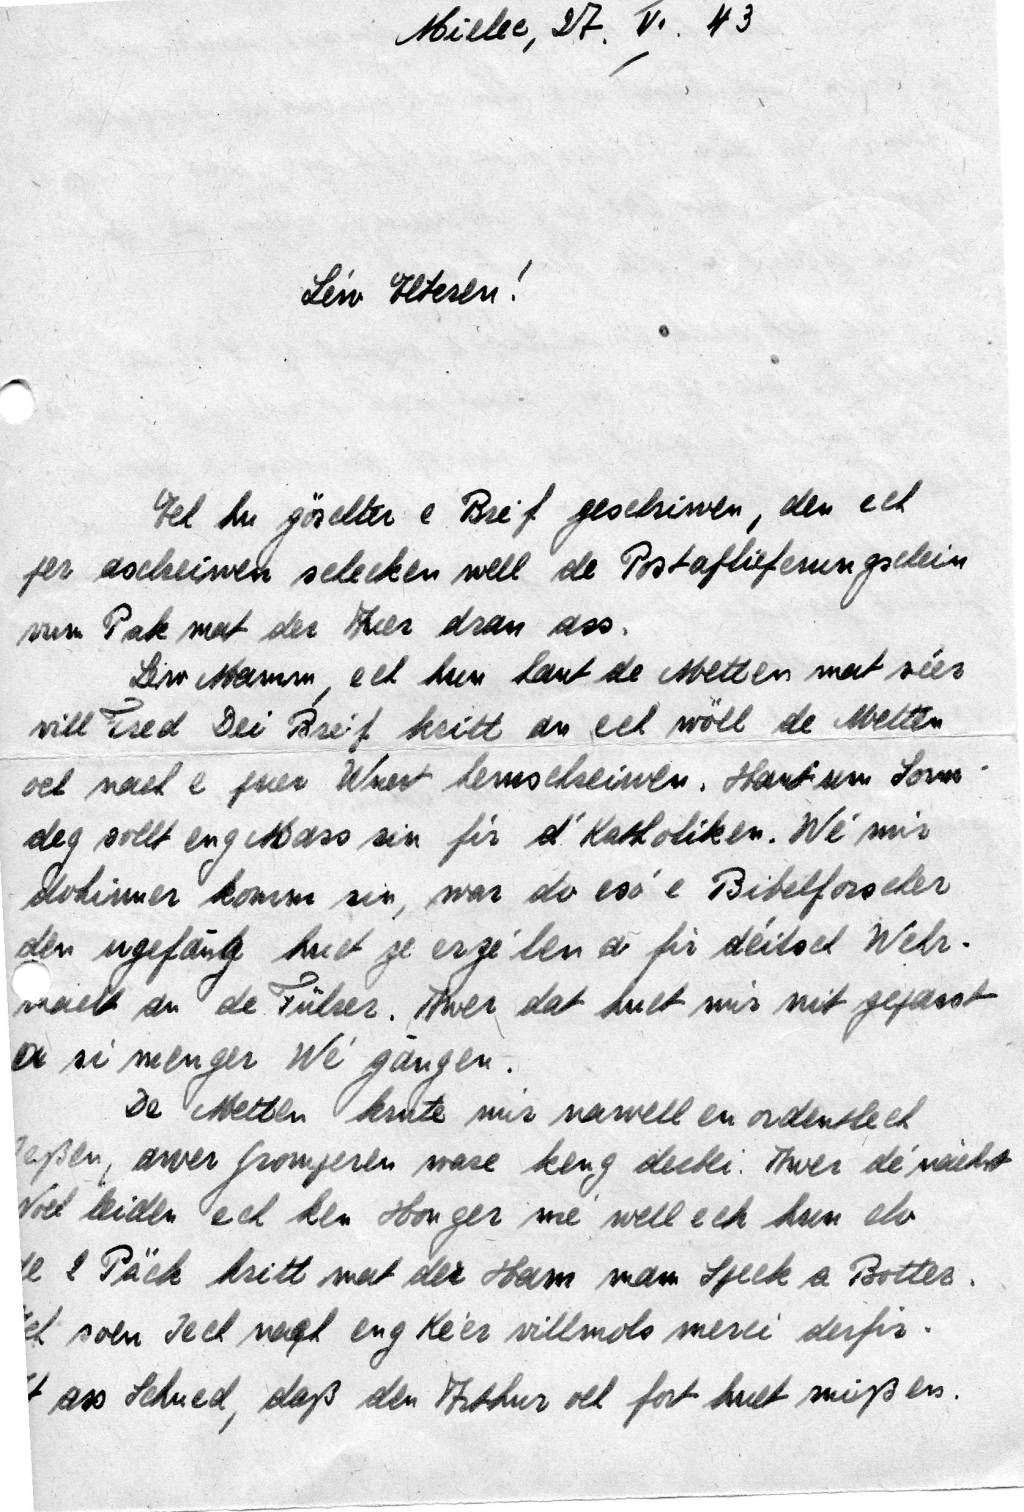 Mielec, 27. VI. 43
Léiw Elteren!
Ech hu göschter e Breif geschriwen, den ech
fer aschreiwen schecken well de Postaflieferungschein
vum Pak mat der Auer dran ass.
Léiw Mamm, ech hun haut de Metten mat séier
vill Fred Dei Breif kritt an ech wöll de Metten
och nach e puer Wuert hemschreiwen. Haut um Sonn-
deg sollt eng Mass sin fir d' Katholiken. Wé mir
dohinner komm sin, war do esó e Bibelforscher
den ugefang huet ze erzé'len a fir déitsch Wehr-
macht an de Führer. Awer dat huet mir nit gepasst
a si menger Wé gangen.
De Metten krute mir narwell en ordentlech
Ießen, awer Gromperen ware keng derbei. Awer dé nächst
Woch leiden ech ken Honger mé well ech hun do
de 2 Päck kritt mat der Ham mam Speck a Botter.
Ech soen Iech nach eng Ke'er villmols merci derfir.
Et ass Schued, daß den Arthur och fort huet mißen.